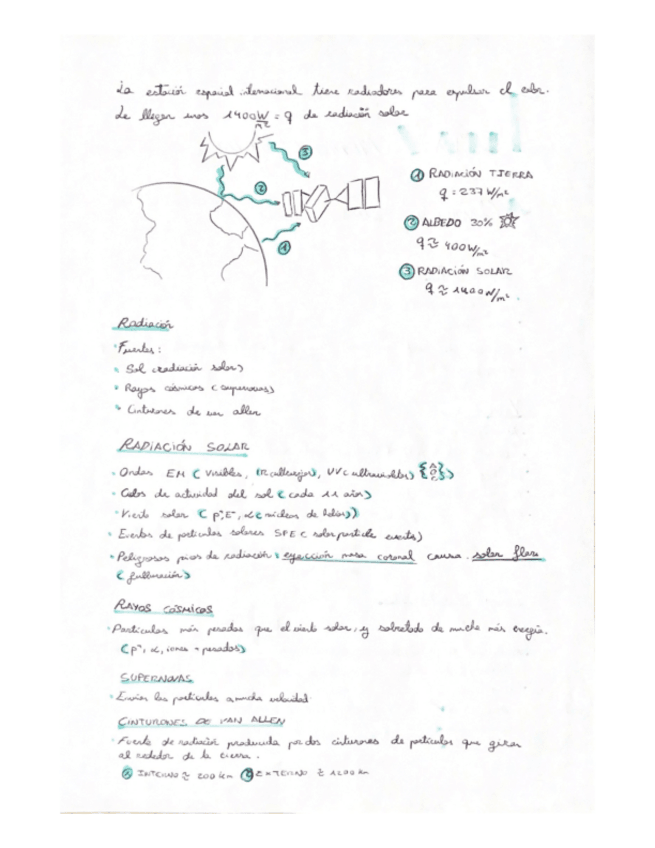 La estación espacial internacional tiene radiadores para expulsar el calor.
Le llegan unos 1400 W/m² = q de radiación solar
③
②
①
① RADIACIÓN TIERRA
q = 237 W/m²
② ALBEDO 30%
q ≈ 400 W/m²
③ RADIACIÓN SOLAR
q ≈ 1400 W/m².
Radiación
Fuentes:
Sol (radiación solar)
Rayos cósmicos (supernovas)
Cinturones de van allen
RADIACIÓN SOLAR
Ondas EM (visibles, IR (infrarrojo), UV (ultravioleta) {A B C})
Ciclos de actividad del sol (cada 11 años)
Viento solar (p⁺, E⁻, α (núcleos de helio))
Eventos de partículas solares SPE (solar particle events)
Peligrosos picos de radiación: eyección masa coronal causa solar flare
(fulguración)
RAYOS CÓSMICOS
Partículas más pesadas que el viento solar, y sobretodo de mucha más energía.
(p⁺, α, iones + pesados)
SUPERNOVAS
Envían las partículas a mucha velocidad
CINTURONES DE VAN ALLEN
Fuente de radiación producida por dos cinturones de partículas que giran
alrededor de la tierra.
① INTERNO ≈ 200 km ② EXTERNO ≈ 1200 km